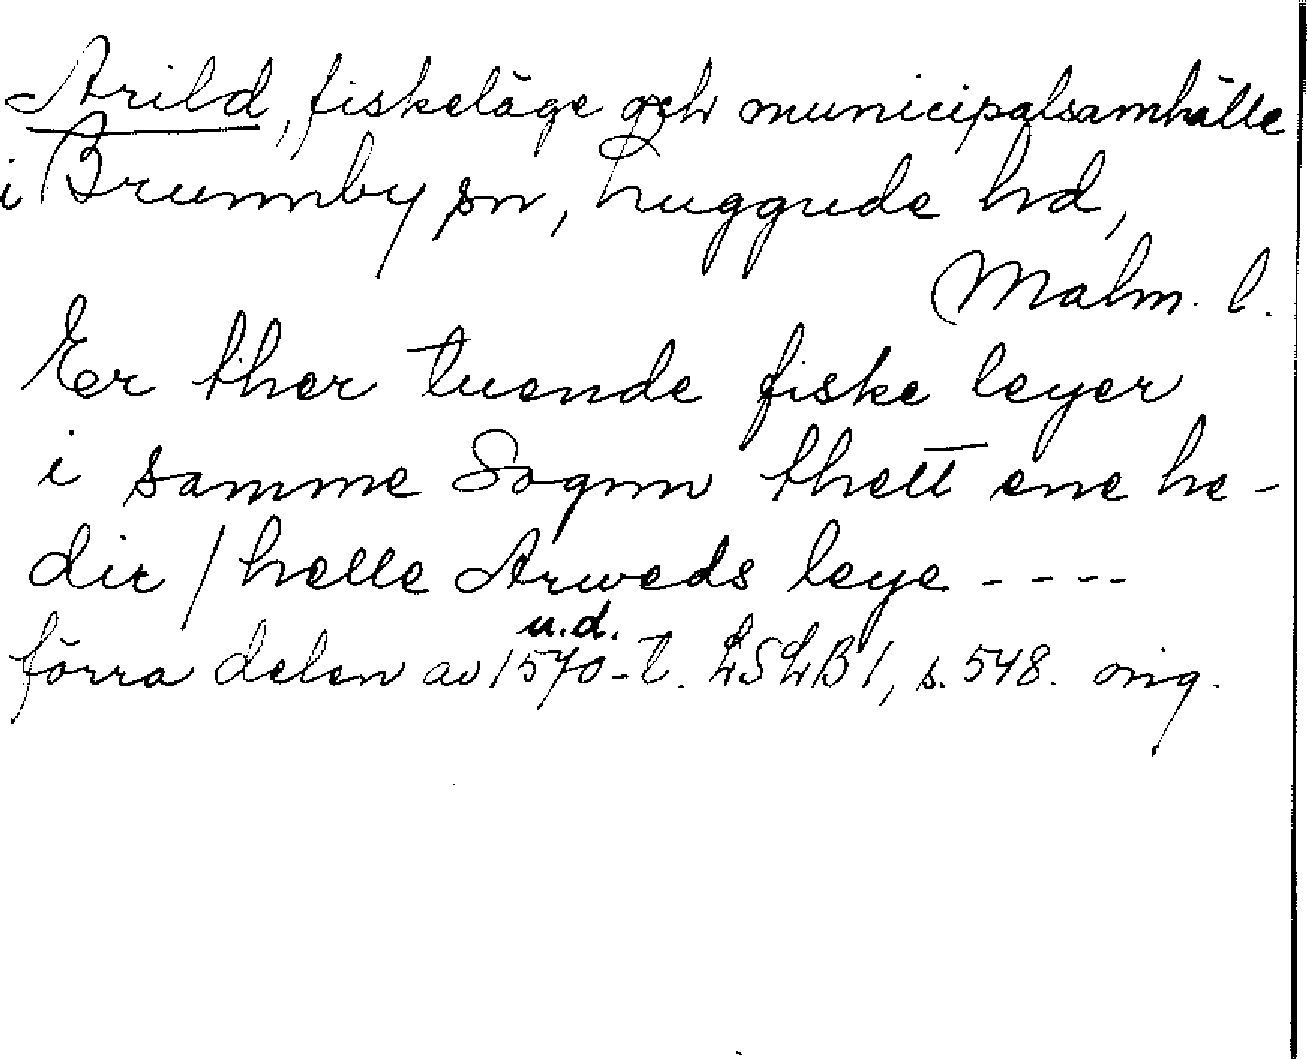 Arild, fiskeläge och municipalsamhälle
i Brunnby sn, Luggude hd,
Malm. l.
Er ther tuende fiske leyer
i samme Sognn thett ene he-
dir / helle Arweds leye ----
u.d.
förra delen av 1570-t. LSLB 1, s. 548. orig.